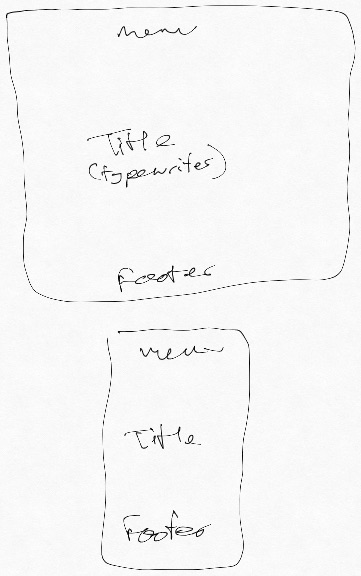 menu
Title
(typewriter)
Footer
menu
Title
Footer